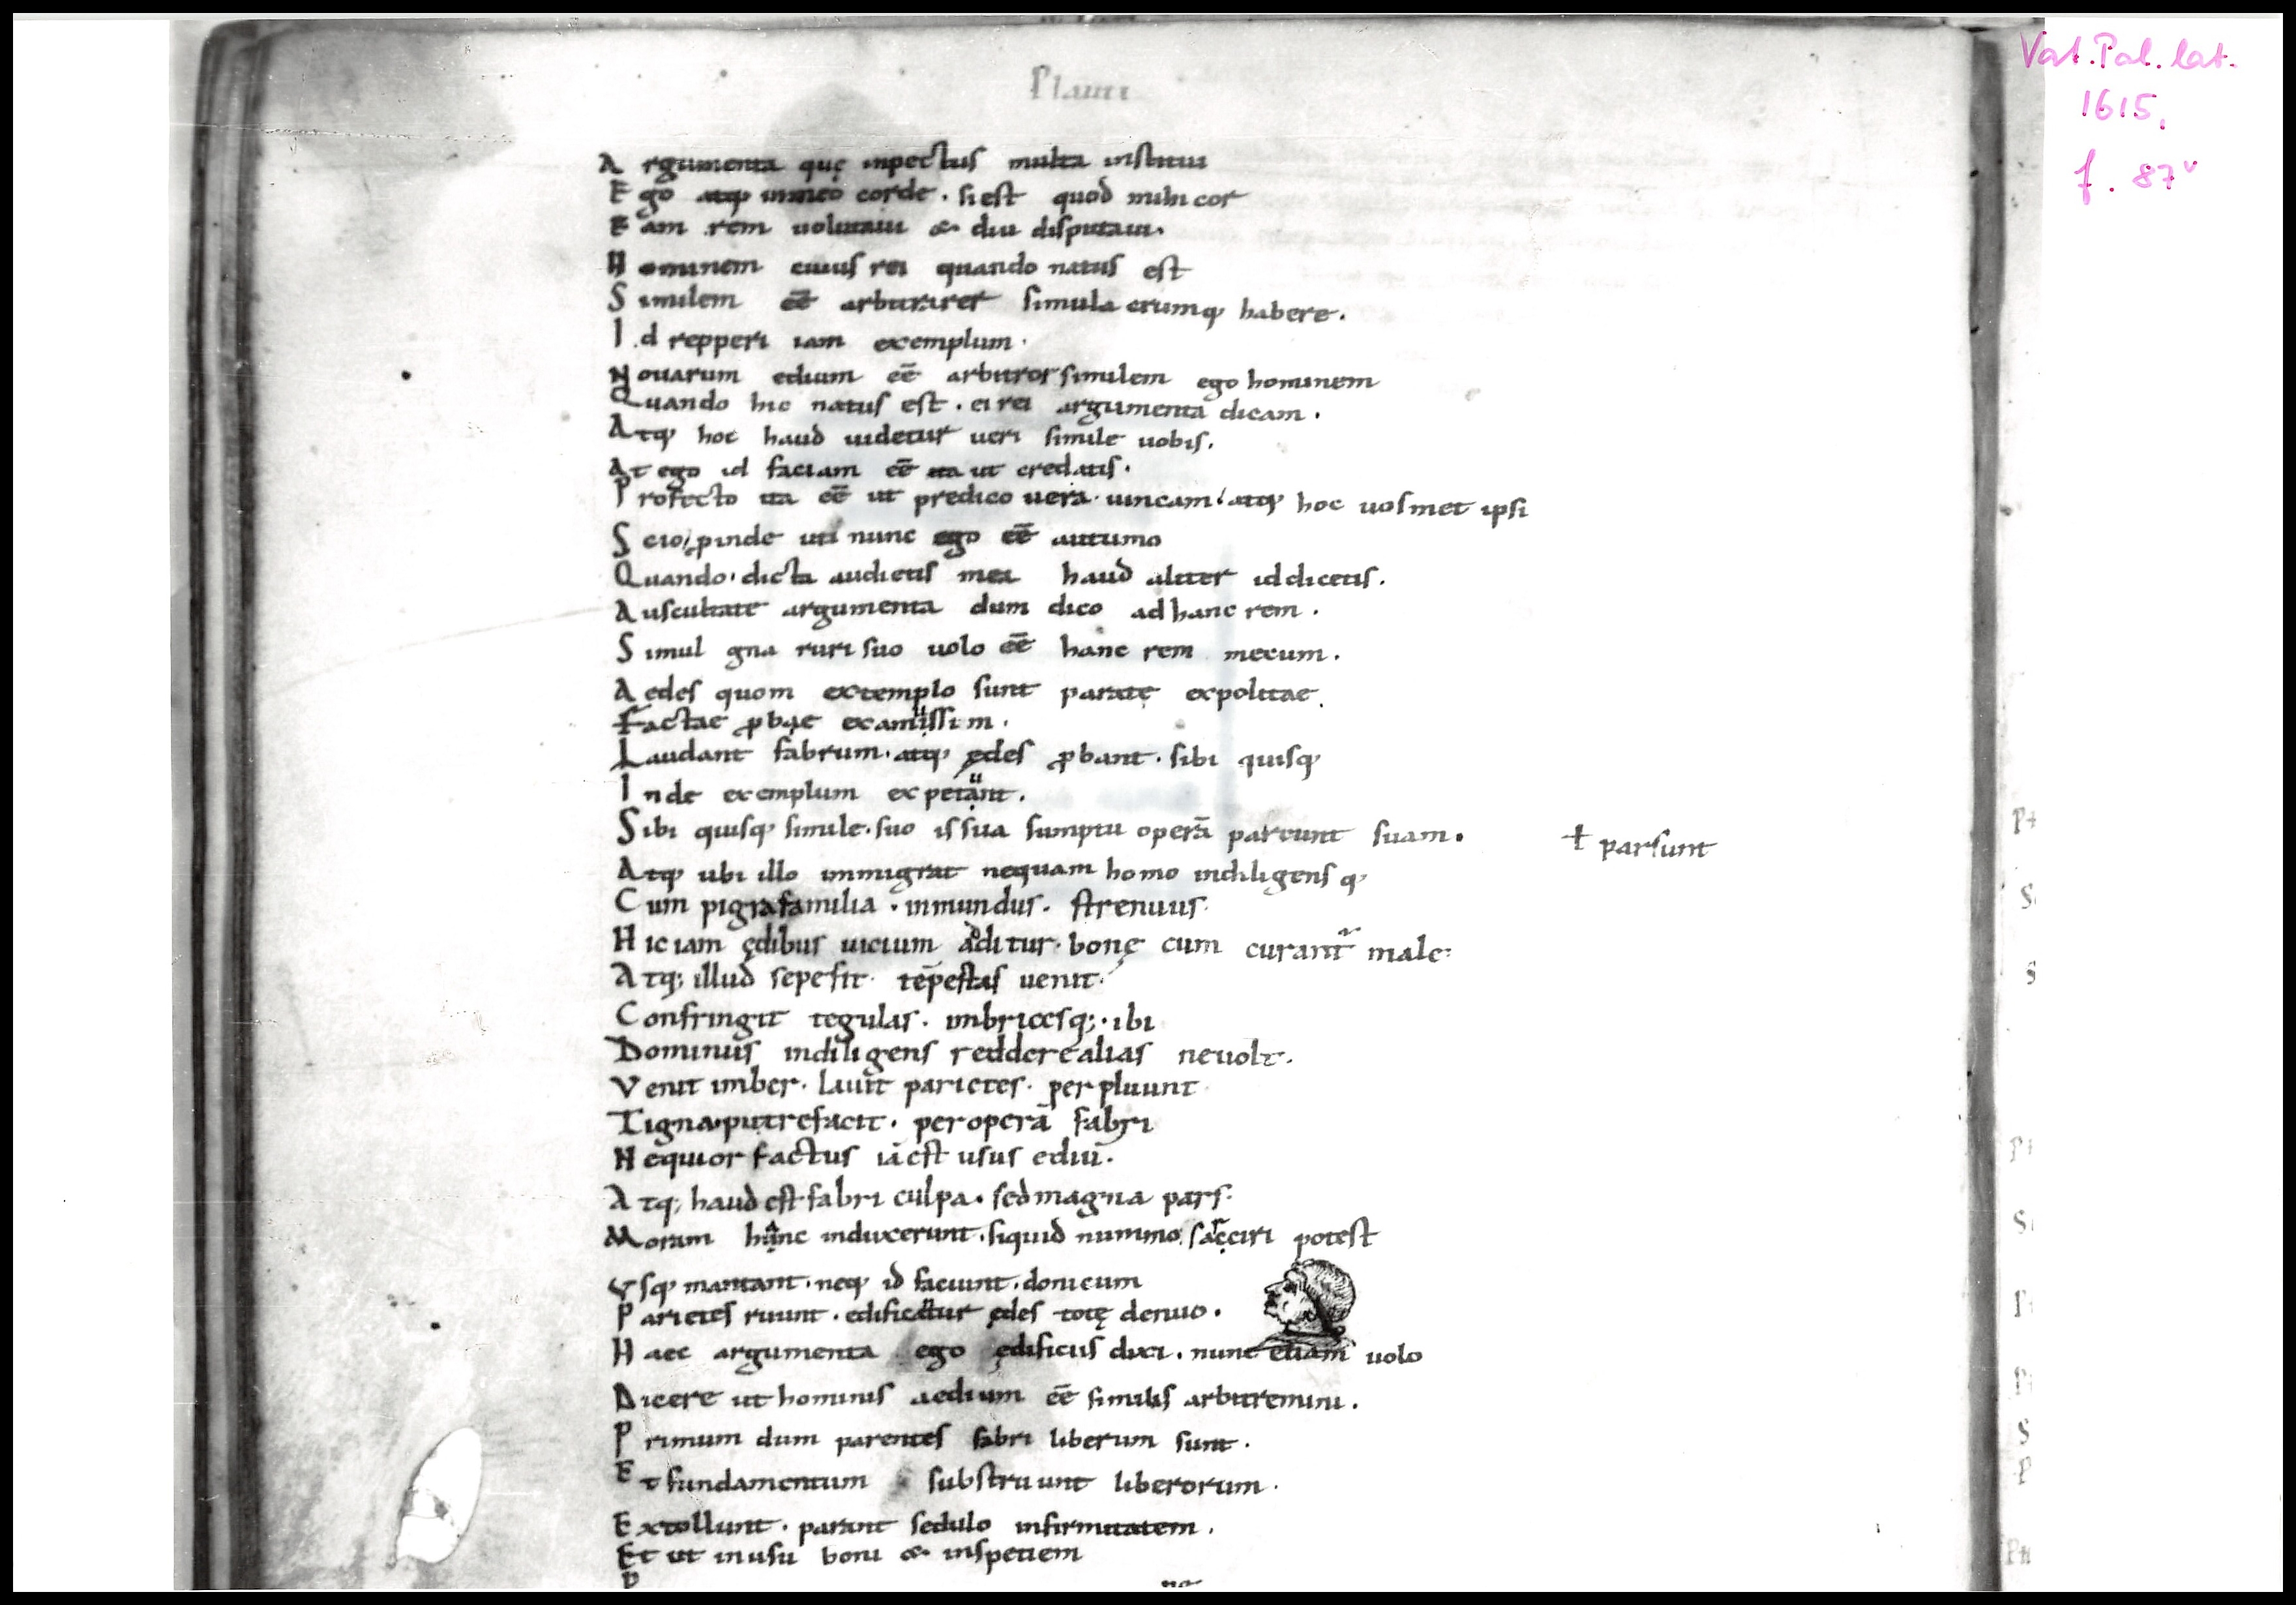 Vat. Pal. lat.
1615,
f. 87v
Plauti
Argumenta quę inpectus multa institui
Ego atq; inmeo corde. si est quod mihi cor
Eam rem uolutaui & diu disputaui.
Hominem cuius rei quando natus est
Similem eē arbitrarer simula crumq; habere.
Id repperi iam exemplum.
Nouarum edium eē arbitror similem ego hominem
Quando hic natus est. ei rei argumenta dicam.
Atq; hoc haud uidetur ueri simile uobis.
At ego id faciam eē ita ut credatis.
Profecto ita eē ut predico uera uincam. atq; hoc uosmet ipsi
Scio, ꝓinde uti nunc ego eē autumo
Quando. dicta audietis mea haud aliter id dicetis.
Auscultate argumenta dum dico ad hanc rem.
Simul gna ruri suo uolo eē hanc rem mecum.
Aedes quom extemplo sunt paratę expolitae.
Factae ꝓbae examussim.
Laudant fabrum. atq; ędes ꝓbant. sibi quisq;
Inde exemplum expetunt.
Sibi quisq; simile. suo is sua sumptu operā parcunt suam.
ł parsunt
Atq; ubi illo immigrat nequam homo indiligens q;
Cum pigrafamilia. inmundus. strenuus.
Hic iam ędibus uicium additur. bonę cum curantur male:
Atq; illud sepe fit. tēpestas uenit.
Confringit tegulas. imbricesq;. ibi
Dominus indiligens reddere alias neuolt.
Venit imber. lauit parietes. perpluunt
Tigna. putrefacit. peroperā fabri
Nequior factus iā est usus ediū.
Atq; haud est fabri culpa. sed magna pars.
Moram hanc induxerunt. siquid nummo sarciri potest
Vsq; mantant. neq; id faciunt. donicum
Parietes ruunt. edificatur ędes totę denuo.
Haec argumenta ego ędificiis dixi. nunc etiam uolo
Dicere ut hominis aedium eē similis arbitremini.
Primum dum parentes fabri liberum sunt.
Et fundamentum substruunt liberorum.
Extollunt. parant sedulo infirmitatem.
Et ut in usu boni & inspetiem